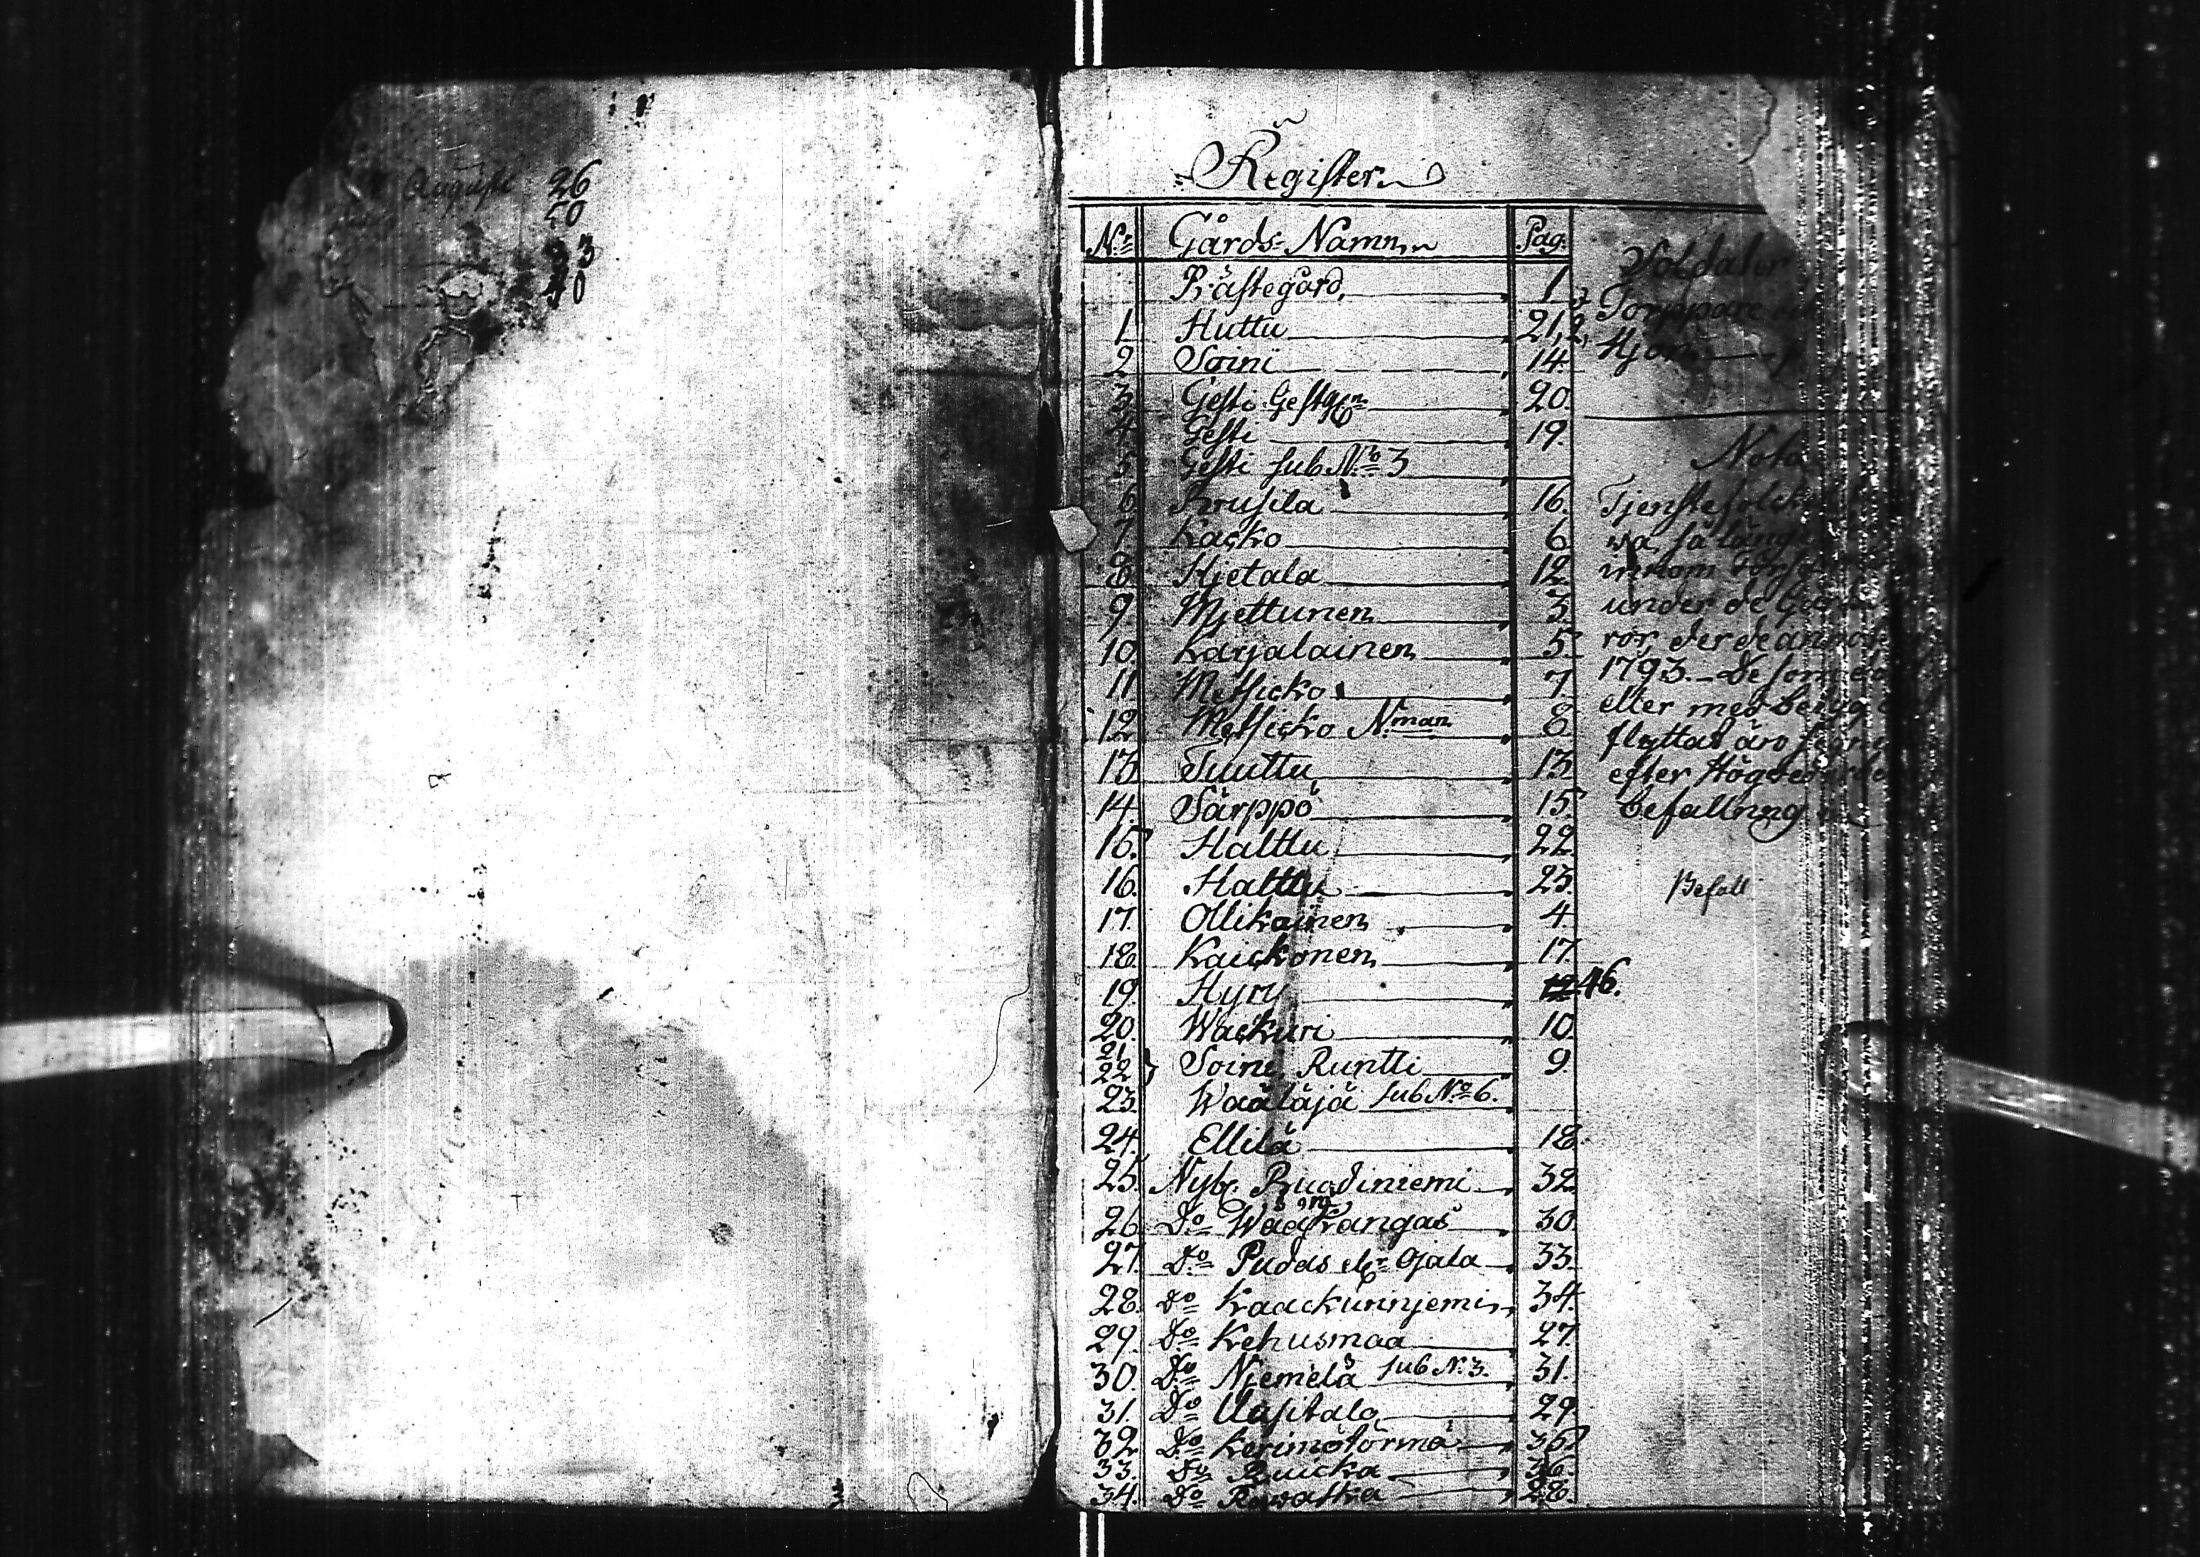 Augusti 26
50
93
40
Register
N:o Gårds-Namn Pag:
Prästegård 1
1 Huttu 21, 2,
2 Sorni 14
3 Gesti Gestg
4 Gesti 19.
5 Gesti sub N:o 3
6 Krusila 16.
7 Kacko 6
8 Hjetala 12
9. Mjettunen 3
10. Karjalainen 5
11 Metsicko 7
12 Metsicko N:man 8
13 Tuuttu 13
14. Särppö 15
15. Halttu 22
16. Halttu 23.
17. Ollikainen 4
18 Kaickonen 17
19. Hyry 46.
20. Wackuri 10
21
22 } Soini, Runtti 9
23. Wääläjä sub N:o 6.
24. Ellilä 18
25 Nyb. Ruodiniemi 32
26 D:o kangas 30
27. D:o Pudas el:r Ojala 33
28 D:o Kaackurinjemi 34
29. D:o Kehusmaa 27.
30. D:o Njemelä sub N:3. 31.
31. D:o Uusitalo 29
32 D:o Kerimätörmä
33. D:o Ruicka 36.
34. D:o 28.
Soldater
Torppare
Nota
Tjenstefolck
wa, så länge
innom
under de
ror, der de
1793. De som
eller med betyg
flyttat äro
efter
befallning
Befall